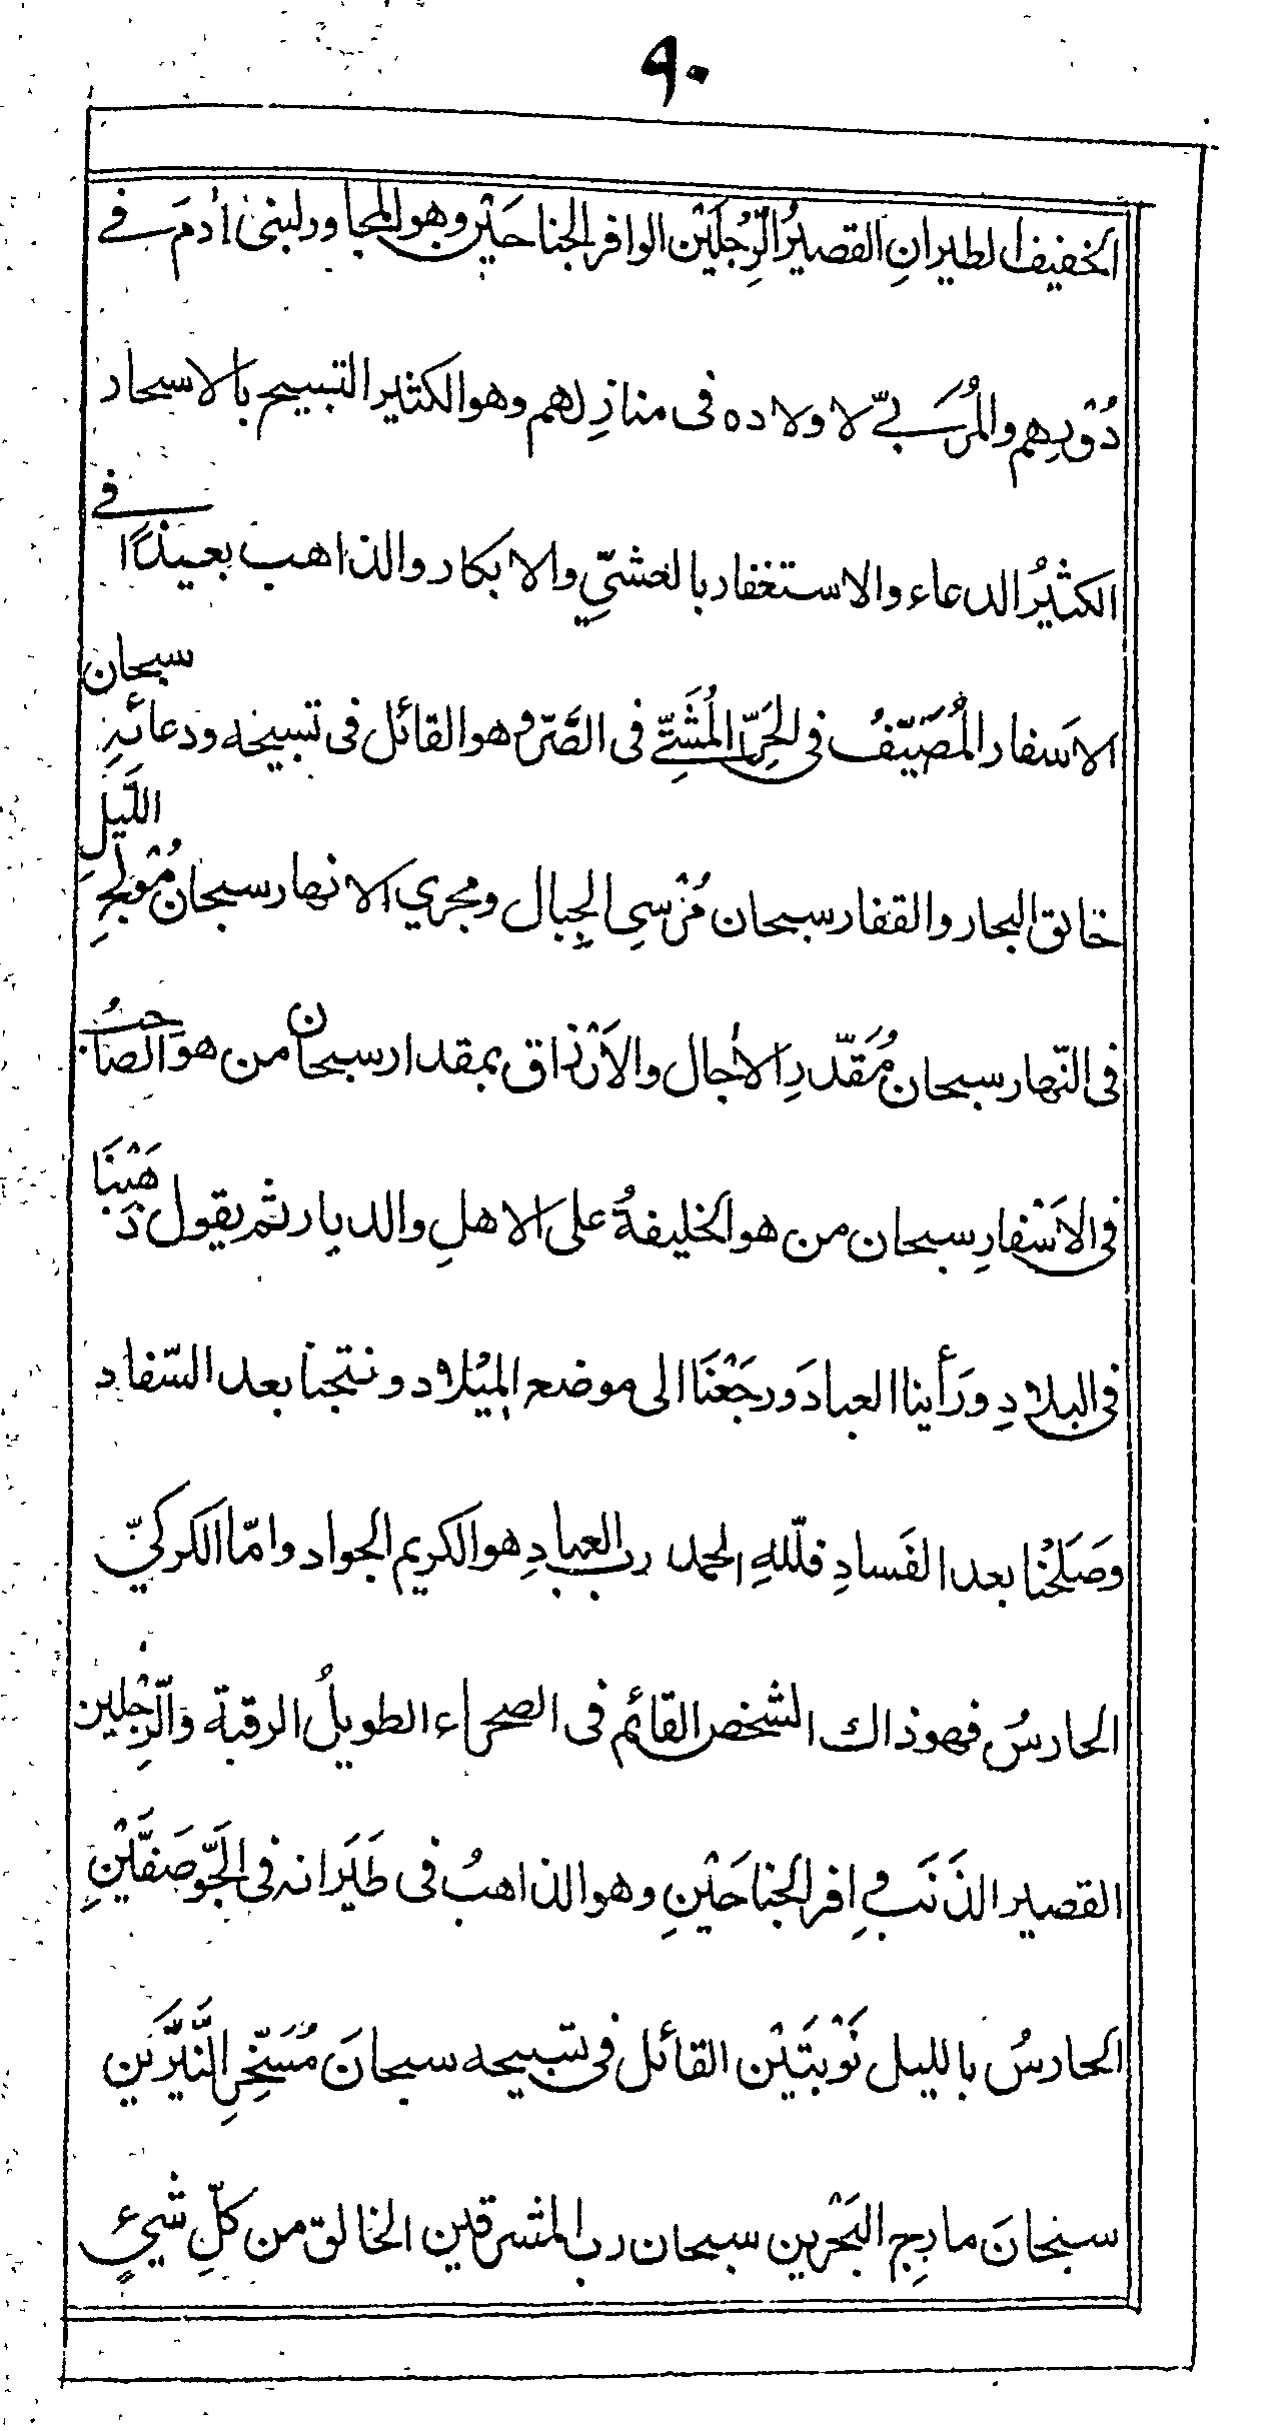 ٩٠
الخفيف الطيرانِ القصيرُ الرِّجْلَيْن الوافر الجناحَيْن وهو المجاور لبنى اٰدمَ فے
دُوْرِهم والمُرَبِّے لاولاده فى منازِلهم وهو الكثير التسبيح بالاسحار
الكثيرُ الدعاء والاستغفار بالعشىِّ والابكار والذاهب بعيدًا فے
الاَسفار المُصَيِّفُ فى الحَرِّ المُشَتِّے فى الصَّرِّ وهو القائل فى تسبيحه ودعائِهِ سبحان
خالق البحار والقفار سبحان مُرْسِى الجِبال ومجرى الانهار سبحان مُوْلِجِ اللَّيلِ
فى النّهار سبحان مُقَدِّرِ الاٰجال والاَرْزاق بمقدار سبحان من هو الصّاحبُ
فى الاَسْفارِ سبحان من هو الخليفةُ على الاهلِ والديار ثم يقول ذَهَبْنَا
فى البلادِ ورَأينا العبادَ ورجَعْنَا الى موضع المِيْلاد ونتجنا بعد السّفاد
وصَلَحْنا بعد الفَسادِ فلِلّٰهِ الحمد رب العبادِ هو الكريم الجواد وامّا الكركىّ
الحارسُ فهو ذاك الشخص القائم فى الصحراء الطويلُ الرقبة والرِّجْلين
القصير الذَنَبِ وافر الجناحَيْنِ وهو الذاهبُ فى طَيَرانه فى الجَوِّ صَفَّيْنِ
الحارسُ بالليل نَوْبتَيْن القائل فى تسبيحه سبحانَ مُسَخِّرِ النَّيِّرَيْنِ
سبحانَ مارِج البَحْرين سبحان رب المشرقين الخالق من كلّ شىءٍ